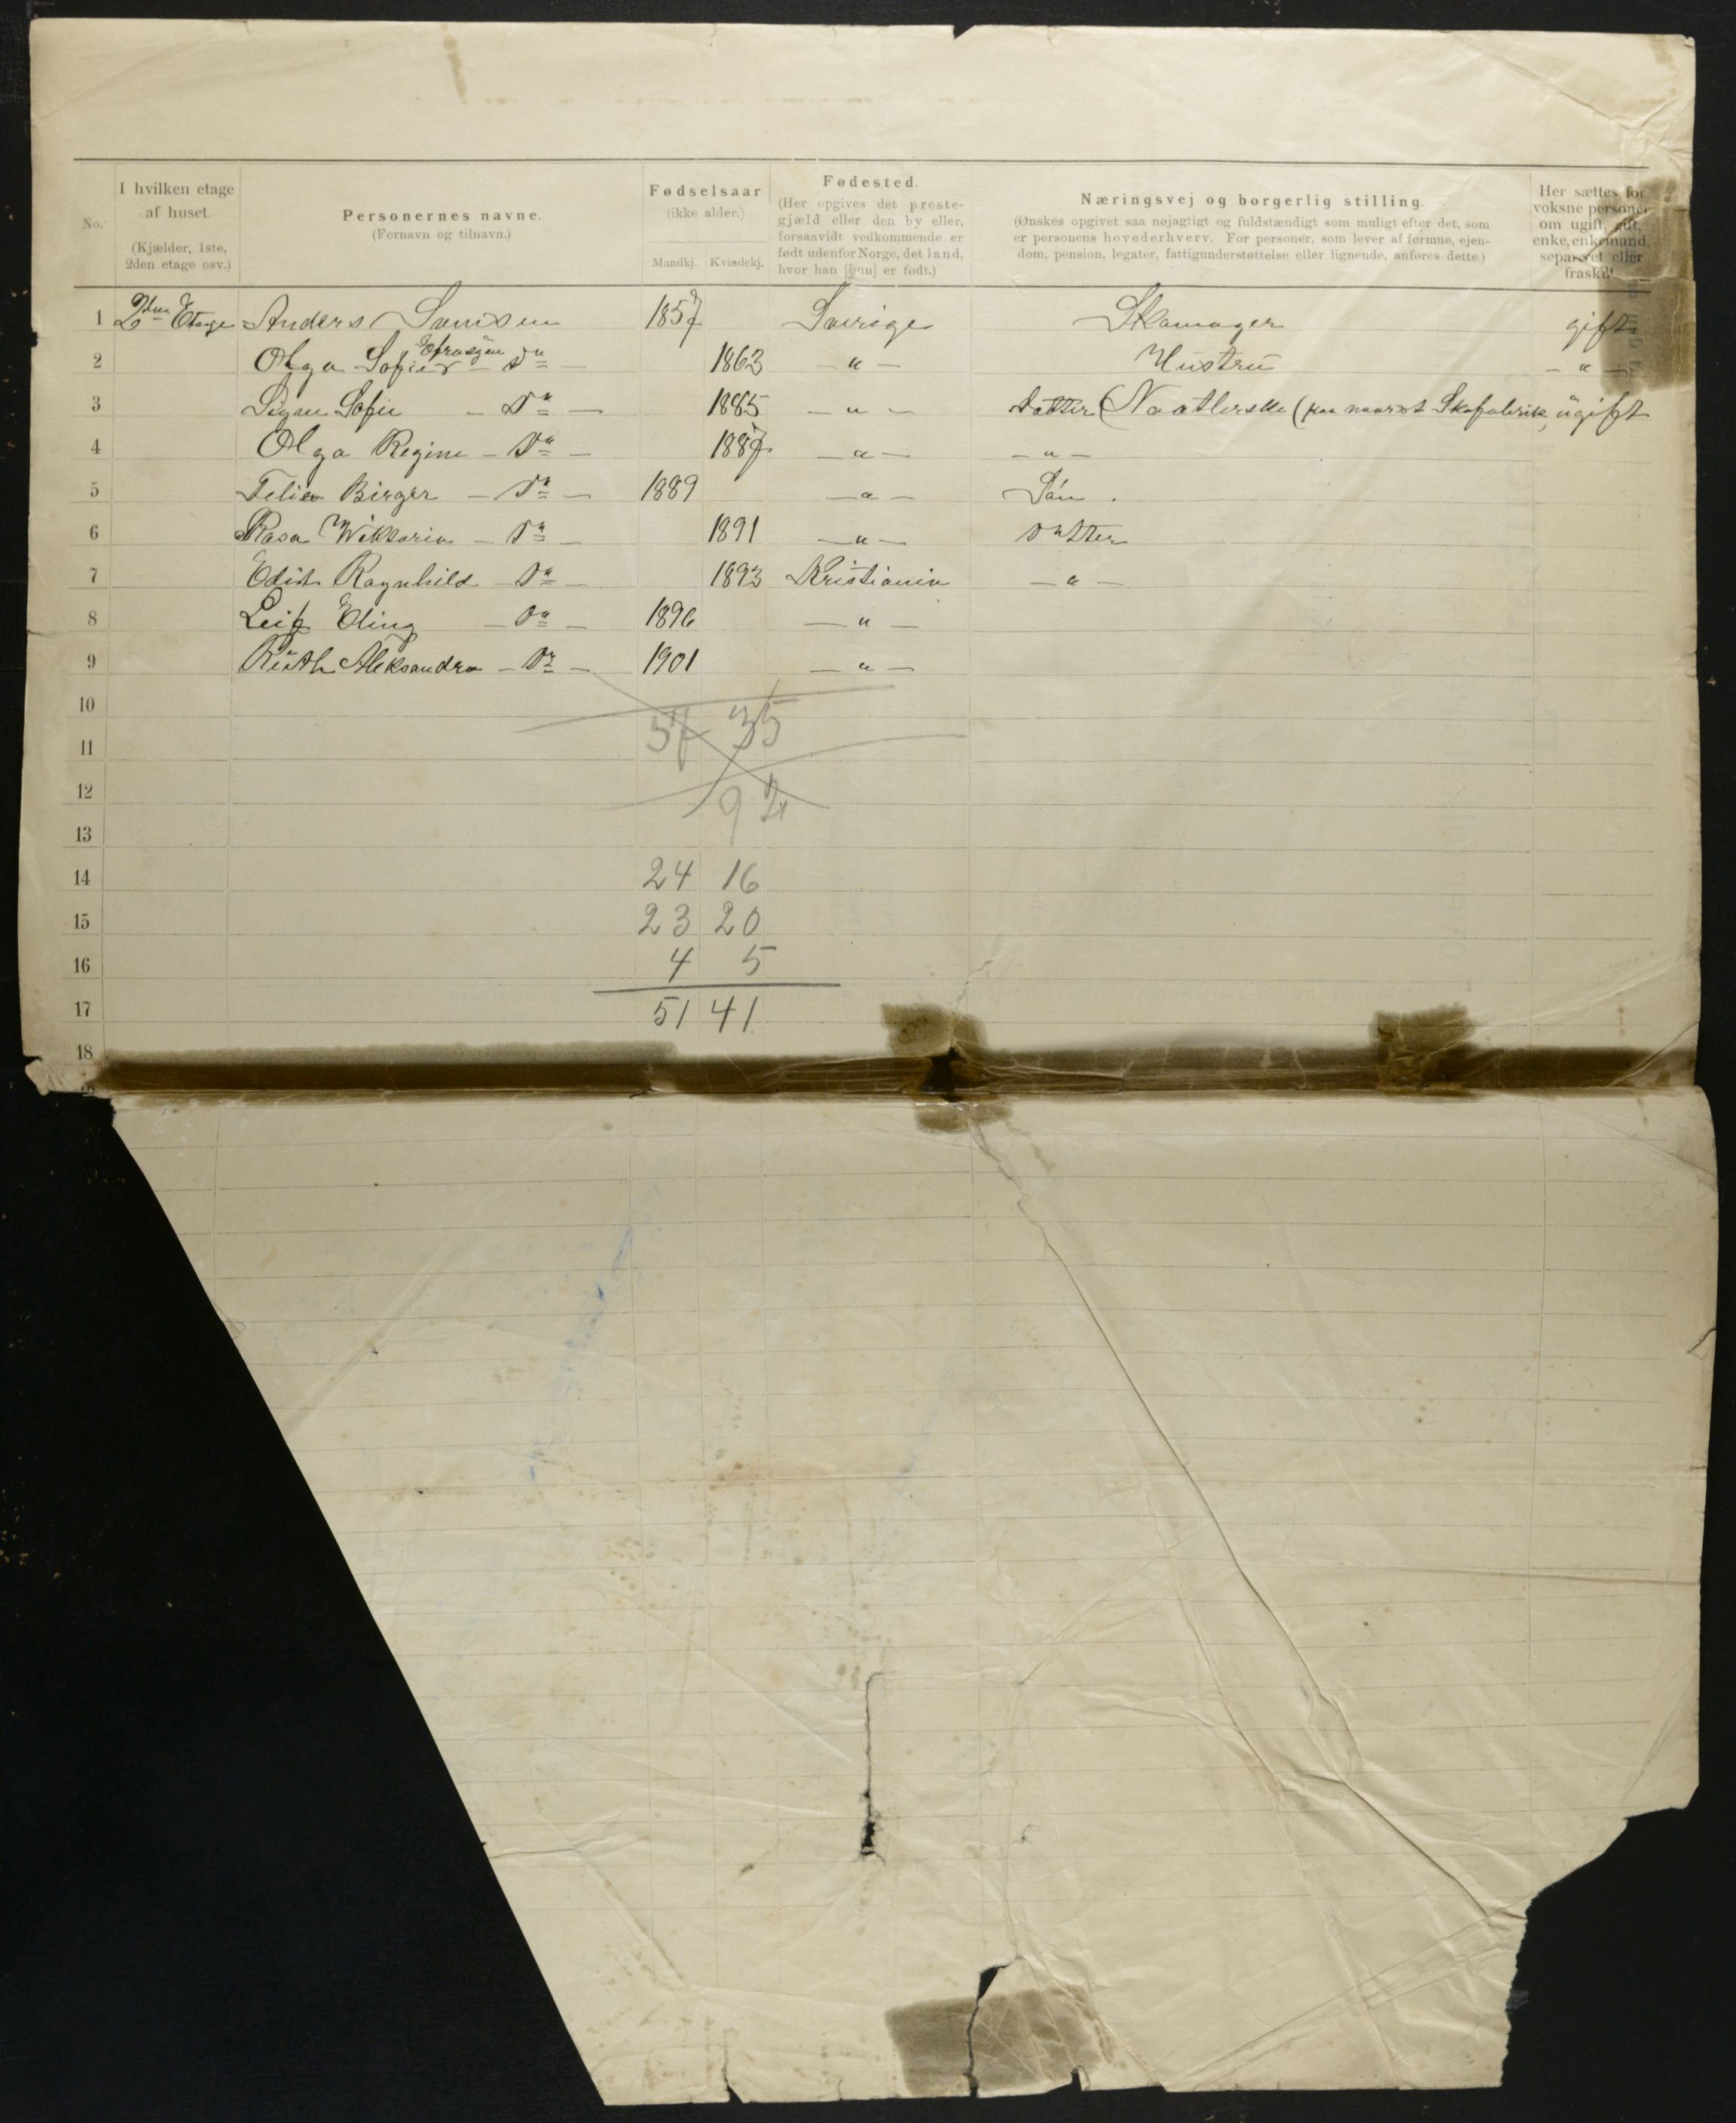 No.
I hvilken etage
af huset.
(Kjælder, 1ste,
2den etage osv.)
Personernes navne.
(Fornavn og tilnavn.)
Fødselsaar
(ikke alder.)
Mandkj. Kvindekj.
Fødested.
(Her opgives det preste-
gjæld eller den by eller,
forsaavidt vedkommende er
født udenfor Norge, det land,
hvor han [hun] er født.)
Næringsvej og borgerlig stilling.
(Ønskes opgivet saa nøjagtigt og fuldstændigt som muligt efter det, som
er personens hovederhverv. For personer, som lever af formue, ejen-
dom, pension, legater, fattigunderstøttelse eller lignende, anføres dette.)
Her sættes for
voksne personer
om ugift, gift,
enke, enkemand,
separeret eller
fraskilt.
1 2den Etage Anders Svensen 1857 Sverige Skomager gift
2 Olga Sofie Do 1863 — " — Hustru — " —
3 Signe Sofie — Do — 1885 — " — Datter (Naatlerske (paa Skofabrik, ugift
4 Olga Regine — Do — 1887 — " — — " —
5 Birger — Do — 1889 — " — Søn.
6 Rosa Wiktoria — Do — 1891 — " — Datter
7 Edith Ragnhild — Do — 1893 Kristiania — " —
8 Leif Eling — Do — 1896 — " —
9 Ruth Aleksandra — Do — 1901 — " —
10
11 57 35
12 92
13
14 24 16
15 23 20
16 4 5
17 51 41
18